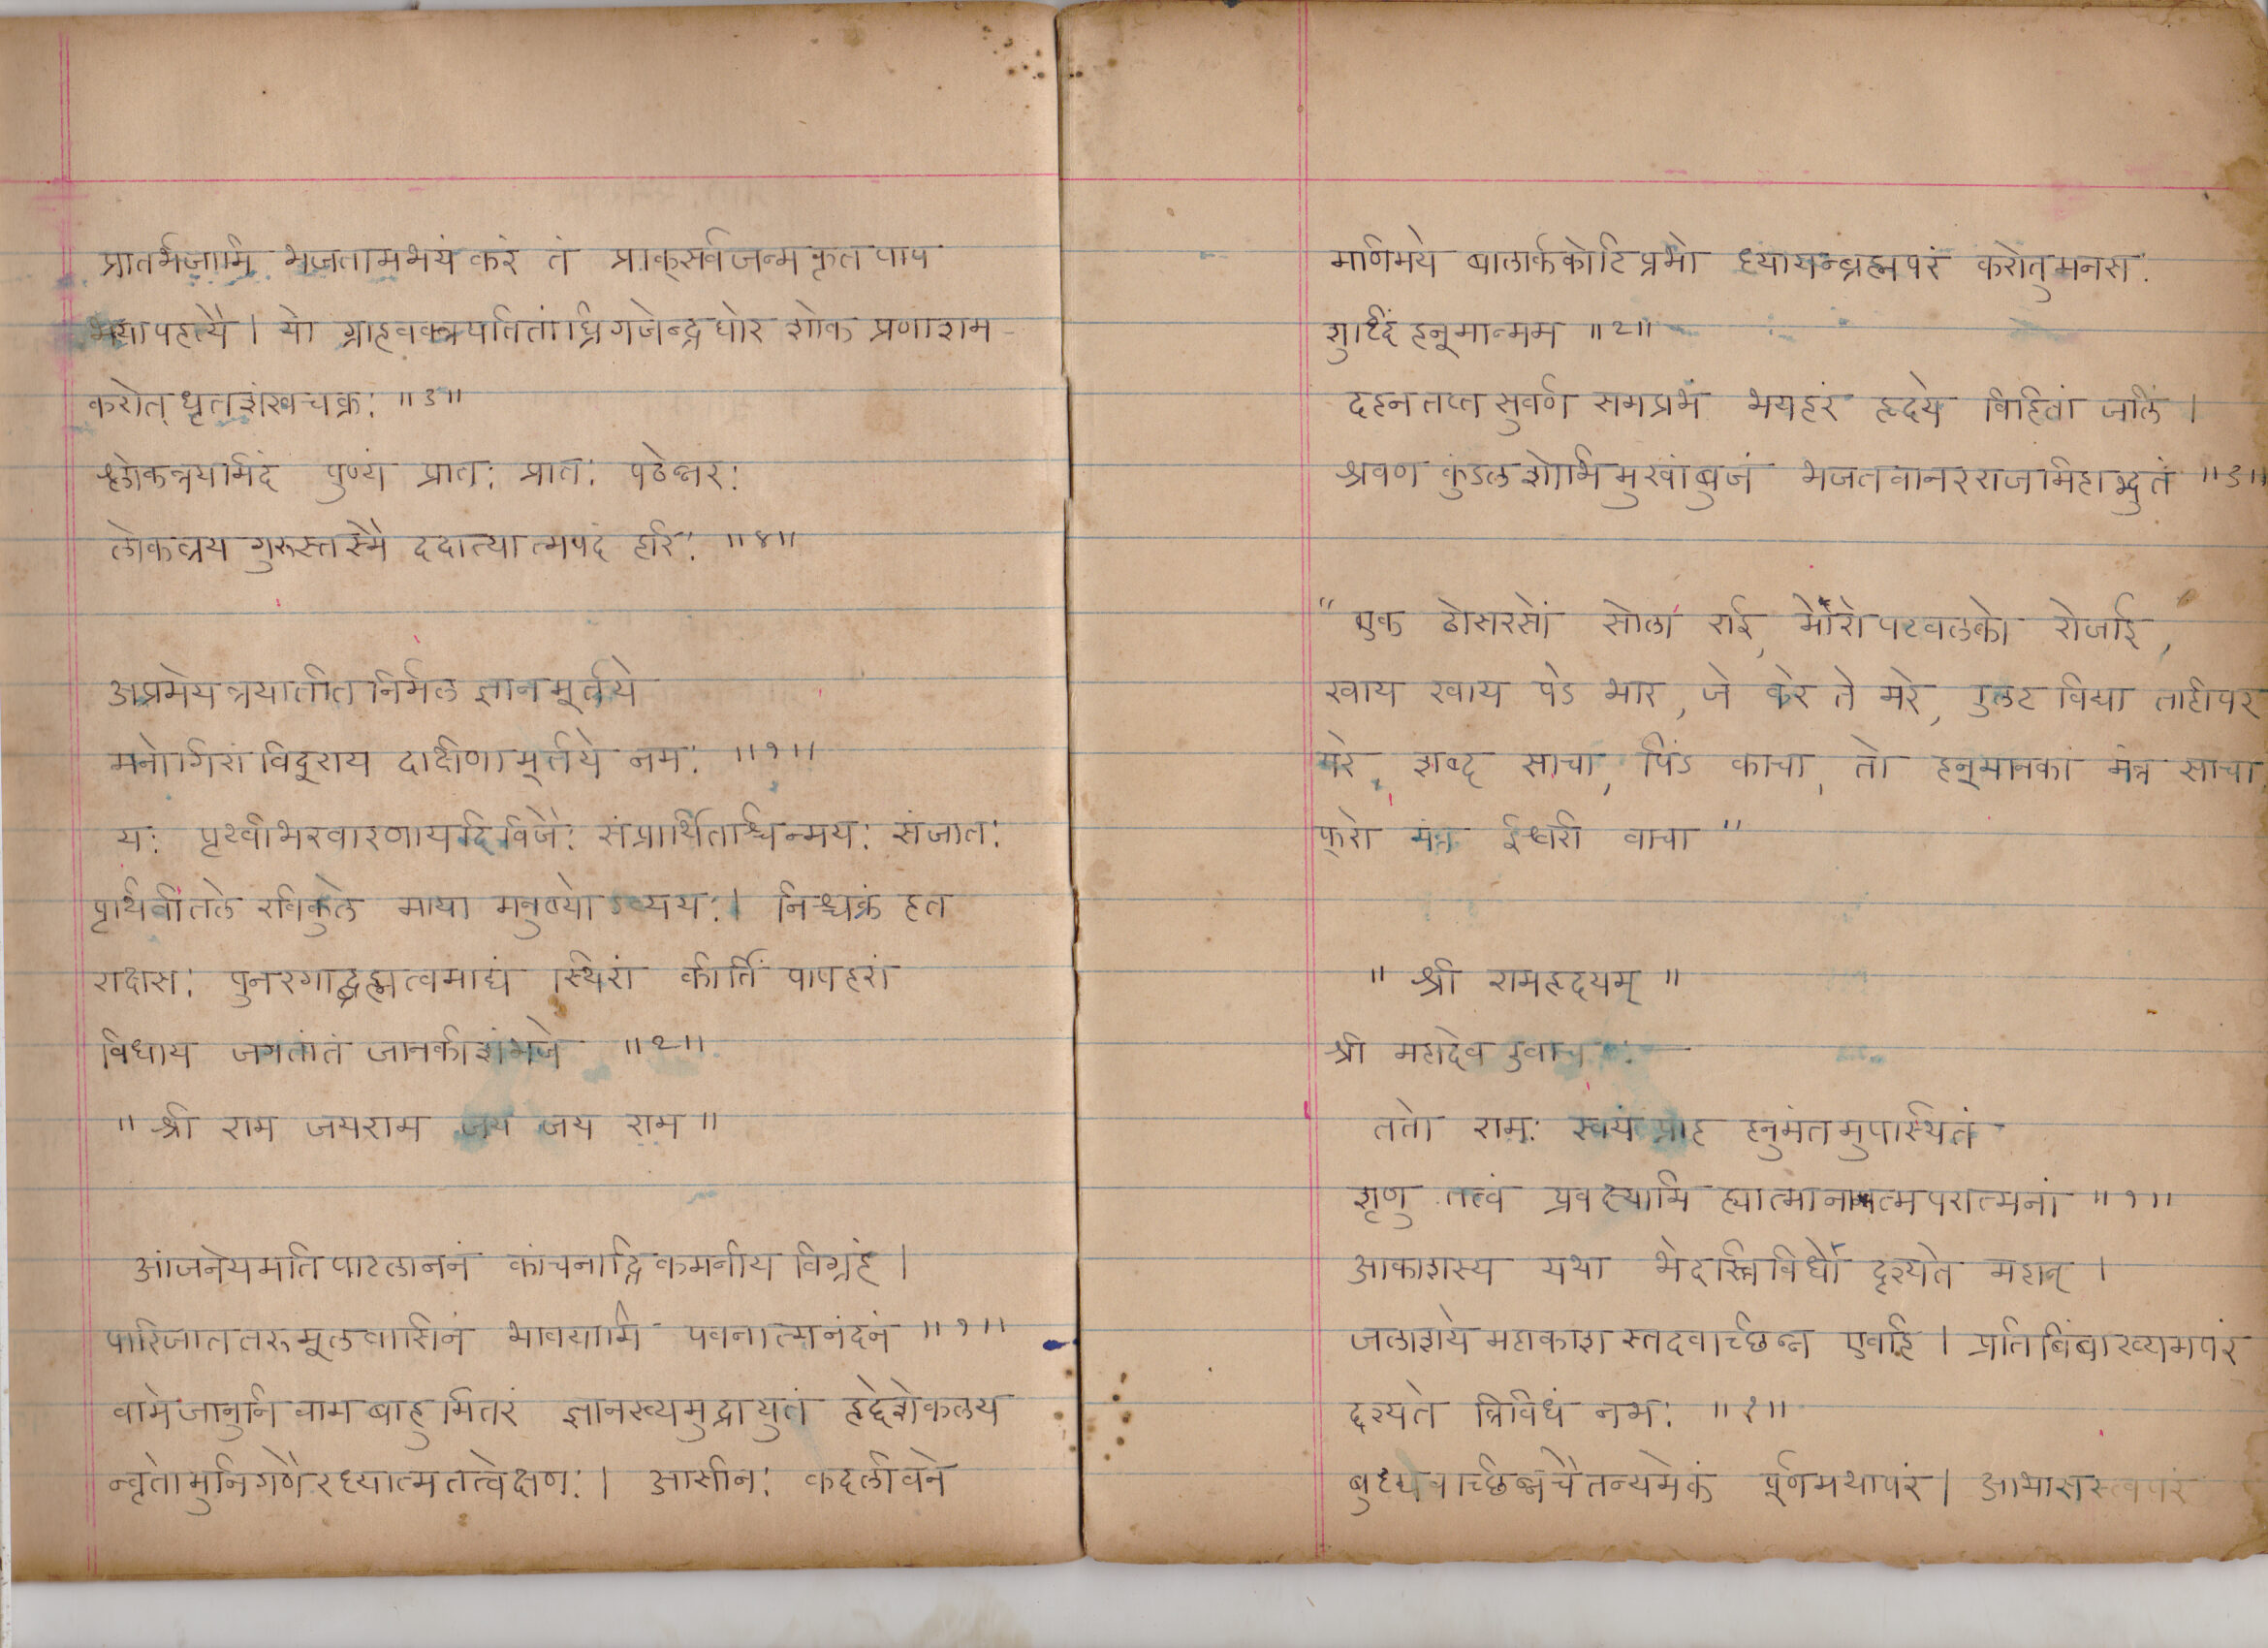 प्रातर्भजामि भजतामभयं करं तं प्राक्सर्वजन्म कृत पाप
भयापहत्यै । यो ग्राहवक्त्रपतितांघ्रिगजेन्द्र घोर शोक प्रणाशम
करोत् धृतशंखचक्रः ॥३॥
श्लोकत्रयमिदं पुण्यं प्रातः प्रातः पठेन्नरः
लोकत्रय गुरुस्तस्मै ददात्यात्मपदं हरिः ॥४॥
अप्रमेय त्रयातीत निर्मल ज्ञानमूर्तये
मनोगिरां विदूराय दाक्षीणामूर्तये नमः ॥१॥
यः पृथ्वीभरवारणाय दिविजैः संप्रार्थितश्चिन्मयः संजातः
पृथिवीतले रविकुले माया मनुष्योऽव्ययः । निश्चक्रं हत
राक्षसः पुनरगाद्ब्रह्मत्वमाद्यं स्थिरां कीर्तिं पापहरां
विधाय जगतांतं जानकीशंभजे ॥२॥
"श्री राम जयराम जय जय राम"
आंजनेयमति पाटलाननं कांचनाद्रि कमनीय विग्रहं ।
पारिजाततरुमूलवासिनं भावयामि पवनात्मनंदनं ॥१॥
वामेजानुनि वाम बाहुमितरं ज्ञानख्यमुद्रायुतं हृद्देशेकलय
न्वृतोमुनिगणैरध्यात्मतत्वेक्षणः । आसीनः कदलीवने
मणिमये बालार्ककोटिप्रभो ध्यायन्ब्रह्मपरं करोतु मनसः
शुद्धिं हनूमान्मम ॥२॥
दहनतप्त सुवर्ण समप्रभं भयहरं हृदये विहितां जलिं ।
श्रवण कुंडल शोभि मुखांबुजं भजत वानरराजमिहाद्भुतं ॥३॥
"एक ठोसरसों सोला राई, मोरो पटवलको रोजाई,
खाय खाय पडे भार, जे करे ते मरे, उलट विद्या ताहीपर
परे, शब्द साचा, पिंड काचा, तो हनूमानका मंत्र साचा
फुरो मंत्र ईश्वरी वाचा"
"श्री रामहृदयम्"
श्री महादेव उवाच :
ततो रामः स्वयं प्राह हनुमंतमुपस्थितं
शृणु तत्वं प्रवक्ष्यामि ह्यात्मानात्मपरात्मनां ॥१॥
आकाशस्य यथा भेदस्त्रिविधो दृश्यते महान् ।
जलाशये महाकाशस्तदवच्छिन्न एवहि । प्रतिबिंबाख्यमपरं
दृश्यते त्रिविधं नभः ॥२॥
बुध्यवच्छिन्नचैतन्यमेकं पूर्णमथापरं । आभासस्त्वपरं